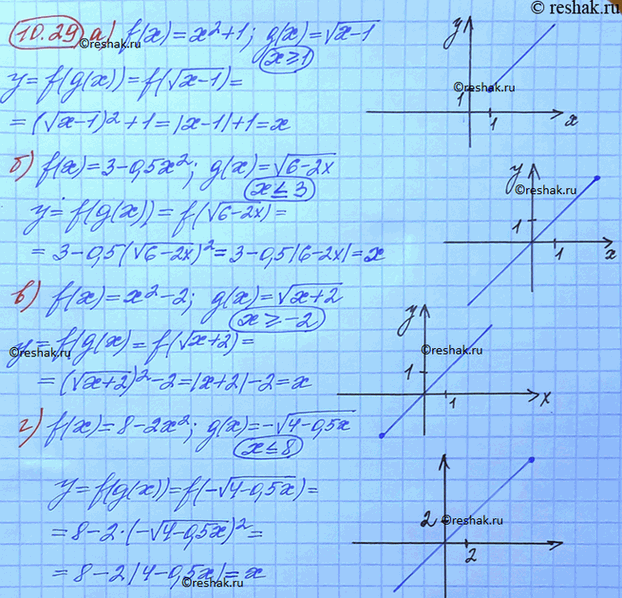 © reshak.ru
10.29 а) f(x)=x²+1; g(x)=√x-1
©reshak.ru
x≥1
y=f(g(x))=f(√x-1)=
=(√x-1)²+1=|x-1|+1=x
y
©reshak.ru
1
1
x
б) f(x)=3-0,5x²; g(x)=√6-2x
x≤3
y=f(g(x))=f(√6-2x)=
=3-0,5(√6-2x)²=3-0,5|6-2x|=x
y
©reshak.ru
1
1
x
в) f(x)=x²-2; g(x)=√x+2
x≥-2
y=f(g(x)=f(√x+2)=
©reshak.ru
=(√x+2)²-2=|x+2|-2=x
y
©reshak.ru
1
1
x
г) f(x)=8-2x²; g(x)=-√4-0,5x
x≤8
y=f(g(x))=f(-√4-0,5x)=
=8-2·(-√4-0,5x)²=
=8-2|4-0,5x|=x
©reshak.ru
2
©reshak.ru
2